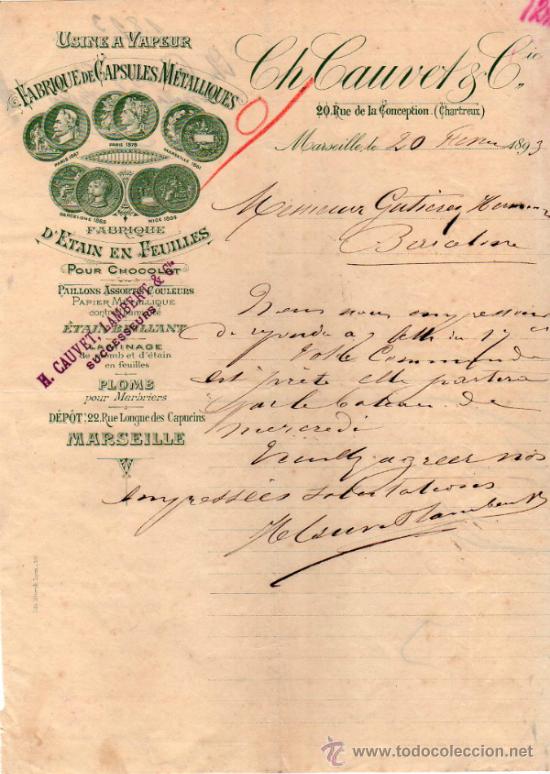 USINE A VAPEUR
FABRIQUE DE CAPSULES MÉTALLIQUES
PARIS 1878
MARSEILLE 1861
BARCELONE 1888
NICE 1884
FABRIQUE
D'ETAIN EN FEUILLES
POUR CHOCOLAT
PAILLONS ASSORTIS COULEURS
PAPIER METALLIQUE
contre
ETAIN BRILLANT
PLATINAGE
de plomb et d'étain
en feuilles
PLOMB
pour Marbriers
DÉPÔT: 22, Rue Longue des Capucins
MARSEILLE
H. CAUVET, LAMBERT & Cie
SUCCESSEURS
Ch. Cauvet & Cie
20, Rue de la Conception. (Chartreux)
Marseille, le 20 1893
Messieurs Gutierez
Barcelone
Nous nous empressons
de repondre a
Votre Commande
est prete elle partira
par le bateau de
mercredi
Veuillez agreer nos
empressées salutations
H Cauvet Lambert
www.todocoleccion.net